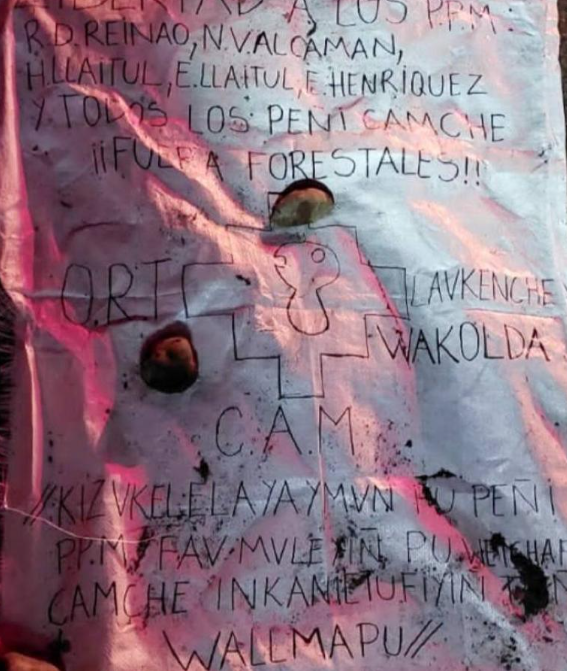 LIBERTAD A LOS P.P.M:
R.D.REINAO, N.VALCAMAN,
H.LLAITUL, E.LLAITUL, E.HENRIQUEZ
Y TODOS LOS PEÑI CAMCHE
¡¡FUERA FORESTALES!!
O.R.T LAVKENCHE
WAKOLDA
C.A.M
//KIZVKELELAYAYMVN PU PEÑI
P.P.M/ FAV MVLEYIÑ PU WEICHAF
CAMCHE INKANIETUFIYIÑ
WALLMAPU//